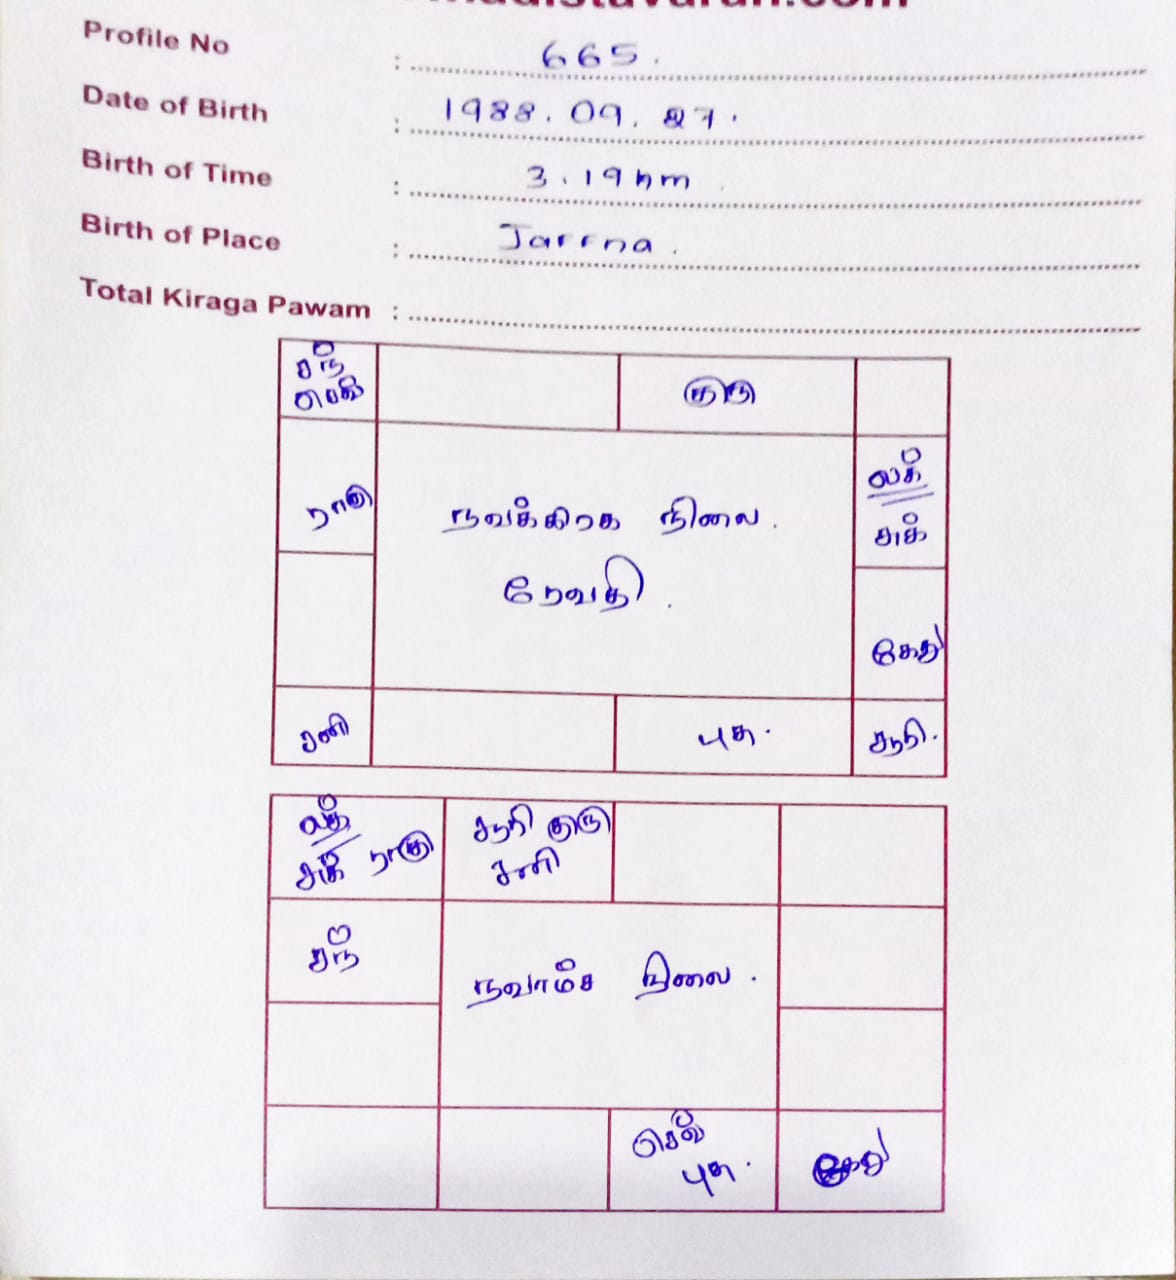 Profile No : 665.
Date of Birth : 1988.09.27.
Birth of Time : 3.19 pm
Birth of Place : Jaffna.
Total Kiraga Pawam :
சந் குரு
செவ்
லக்
ராகு நவக்கிரக நிலை. சுக்
றேவதி. கேது
சனி புத. சூரி.
லக் சூரி குரு
சுக் ராகு சனி
சந் நவாம்ச நிலை.
செவ்
புத. கேது